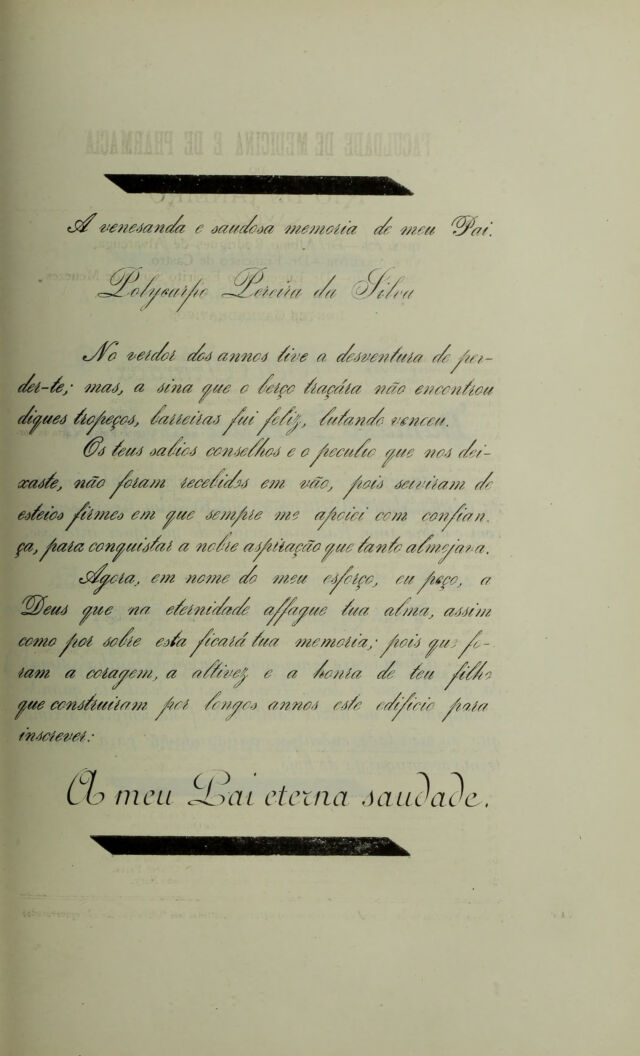 A veneranda e saudosa memoria de meu Pai.
Polycarpo Pereira da Silva
No verdor dos annos tive a desventura de per-
der-te; mas, a sina que o berço traçára não encontrou
diques tropeços, barreiras fui feliz, lutando venceu.
Os teus sabios conselhos e o peculio que nos dei-
xaste, não foram recebidos em vão, pois serviram de
esteios firmes em que sempre me apoiei com confian.
ça, para conquistar a nobre aspiração que tanto almejava.
Agora, em nome do meu esforço, eu peço, a
Deus que na eternidade affague tua alma, assim
como por sobre esta ficará tua memoria; pois que fo-
ram a coragem, a altivez e a honra de teu filho
que construiram por longos annos este edificio para
inscrever:
A meu Pai eterna saudade.